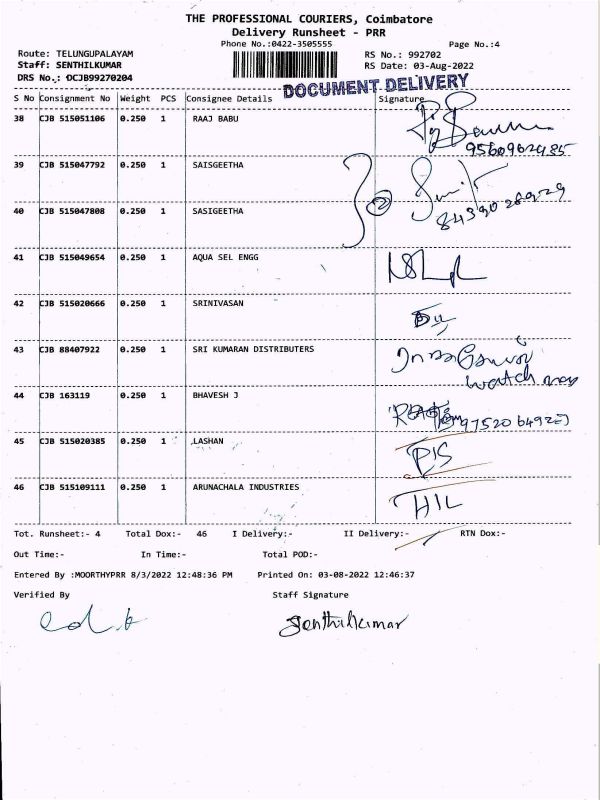 THE PROFESSIONAL COURIERS, Coimbatore
Delivery Runsheet - PRR
Phone No.:0422-3505555 Page No.:4
Route: TELUNGUPALAYAM RS No.: 992702
Staff: SENTHILKUMAR RS Date: 03-Aug-2022
DRS No.: OCJB99270204
DOCUMENT DELIVERY
S No Consignment No Weight PCS Consignee Details Signature
38 CJB 515051106 0.250 1 RAAJ BABU
39 CJB 515047792 0.250 1 SAISGEETHA
40 CJB 515047808 0.250 1 SASIGEETHA
41 CJB 515049654 0.250 1 AQUA SEL ENGG
42 CJB 515020666 0.250 1 SRINIVASAN
43 CJB 88407922 0.250 1 SRI KUMARAN DISTRIBUTERS
watch man
44 CJB 163119 0.250 1 BHAVESH J
45 CJB 515020385 0.250 1 LASHAN
46 CJB 515109111 0.250 1 ARUNACHALA INDUSTRIES HIL
Tot. Runsheet:- 4 Total Dox:- 46 I Delivery:- II Delivery:- RTN Dox:-
Out Time:- In Time:- Total POD:-
Entered By :MOORTHYPRR 8/3/2022 12:48:36 PM Printed On: 03-08-2022 12:46:37
Verified By Staff Signature
Senthilkumar